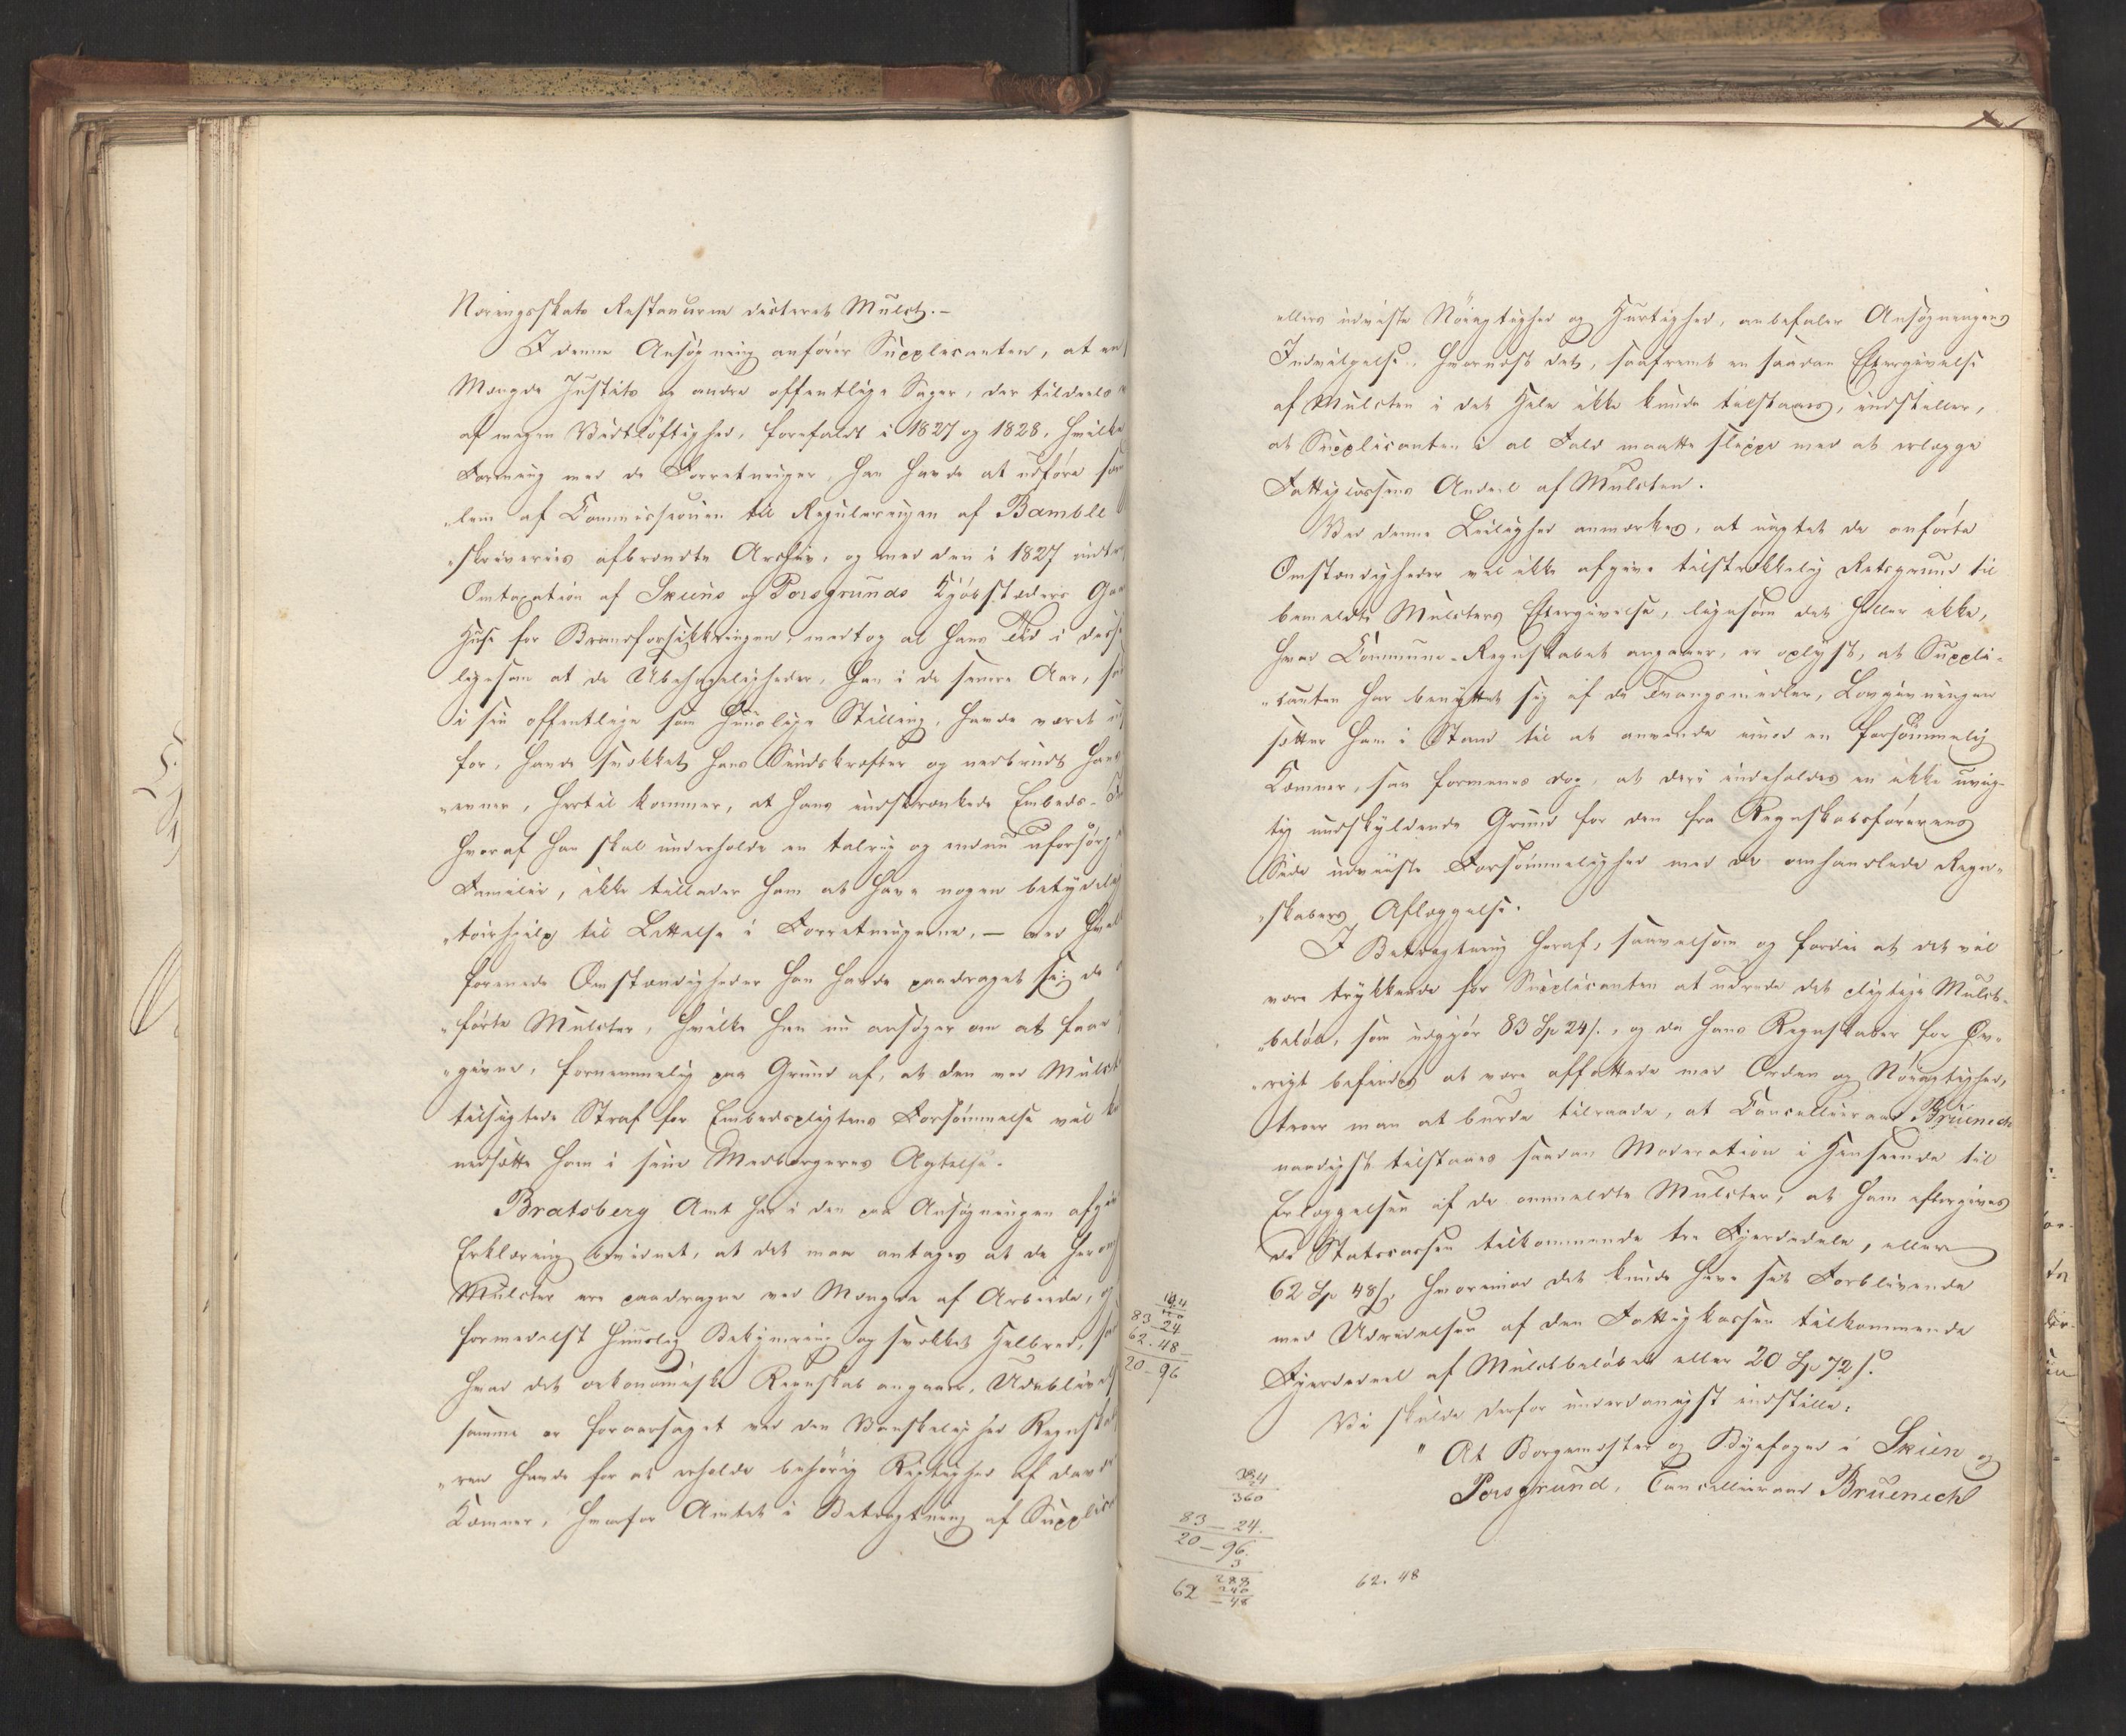 Næringsskats Restancerne dicteret Mulct.-
I denne Ansøgning anfører Supplicanten, at en
Mængde Justits og andre offentlige Sager, der tildeels
af megen Vidtløftighed, forefaldt i 1827 og 1828, hvilke
Forening med de Forretninger, han havde at udføre som
"lem af Commissionen til Reguleringen af Bamble
"skriveries afbrændte Archiv, og med den i 1827 indtr
Omtaxation af Skiens og Porsgrunds Kjøbstæders Gaa
Huse for Brandforsikkringen, medtog al hans Tid i disse
ligesom at de Ubehageligheder, han i de senere Aar, saa
i sin offentlige som huuslige Stilling, havde været ud
for, havde svækket hans Sindskræfter og nedbrudt hans
"evner, hertil kommer, at hans indskrænkede Embeds-
hvoraf han skal underholde en talrig og endnu uforsørg
Familie, ikke tillader ham at have nogen betydelig
"toirhjelp til Lettelse i Forretningerne, — ved hvilke
forenede Omstændigheder han havde paadraget sig de
"førte Mulcter, hvilke han nu ansøger om at faae
"givne, fornemmelig paa Grund af, at den ved Mulct
tilsigtede Straf for Embedspligtens Forsømmelse vil
nedsætte ham i sine Medborgeres Agtelse.
Bratsberg Amt har i den paa Ansøgningen afgiv
Erklæring bevidnet, at det maa antages at de her om
Mulcter ere paadragne ved Mængde af Arbeide, og
formedelst huuslig Bekymring og svækket Helbred, samt
hvad det oekonomiske Regnskab angaaer, Udeblivels
samme er foraarsaget ved den Vanskelighed Regnskab
"ren havde for at erholde behørig Rigtighed af dav
Kæmner, hvorfor Amtet i Betragtning af Supplic
ellers udviste Nøiagtighed og Hurtighed, anbefaler Ansøgningens
Indvilgelse, hvornæst det, saafremt en saadan Eftergivelse
af Mulcten i det Hele ikke kunde tilstaaes, indstiller,
at Supplicanten i al Fald maatte slippe med at erlægge
Fattigcassens Andeel af Mulcten.
Ved denne Leilighed anmærkes, at uagtet de anførte
Omstændigheder vel ikke afgive tilstrækkelig Retsgrund til
bemeldte Mulcters Eftergivelse, ligesom det heller ikke,
hvad Commune-Regnskabet angaaer, er oplyst, at Suppli-
"canten har benyttet sig af de Tvangsmidler, Lovgivningen
sætter ham i Stand til at anvende imod en forsømmelig
Kæmner, saa formenes dog, at deri indeholdes en ikke uvig-
tig undskyldende Grund for den fra Regnskabsførerens
Side udviiste Forsømmelighed med de omhandlede Regn-
"skabers Aflæggelse.
I Betragtning heraf, saavelsom og fordi at det vil
være trykkende for Supplicanten at udrede det pligtige Mulct-
"beløb, som udgjør 83 Sp 24 s., og da hans Regnskaber for Øv-
"rigt befindes at være affattede med Orden og Nøiagtighed,
troer man at burde tilraade, at Cancelliraad Bruenech
naadigst tilstaaes saadan Moderation i Henseende til
Erlæggelsen af de ommeldte Mulcter, at ham eftergives
de Statscassen tilkommende tre Fjerdedele, eller
62 Sp 48 s, hvorimod det kunde have sit Forblivende
med Udredelsen af den Fattigkassen tilkommende
Fjerdedeel af Mulctbeløbet eller 20 Sp 72 s.
Vi skulde derfor underdanigst indstille:
"At Borgemester og Byefoged i Skien og
Porsgrund, Cancelliraad Bruenech
83 - 24
62 - 48
20 - 96
384
360
83 — 24.
20 — 96.
3
288
240
62 — 48
62. 48